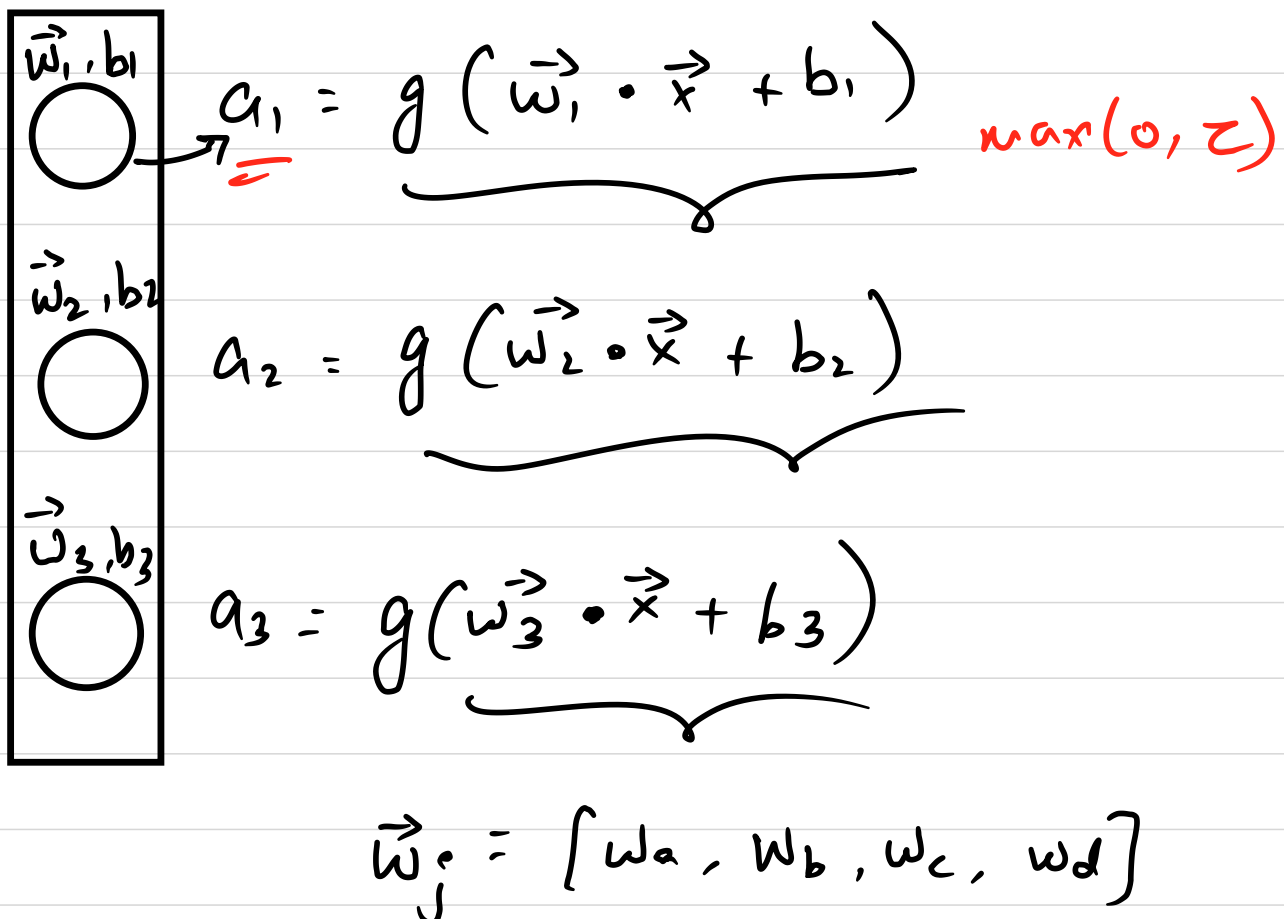 w⃗₁, b₁
a₁ = g(w⃗₁ • x⃗ + b₁)
max(0, z)
w⃗₂, b₂
a₂ = g(w⃗₂ • x⃗ + b₂)
w⃗₃, b₃
a₃ = g(w⃗₃ • x⃗ + b₃)
w⃗ⱼ = [wa, wb, wc, wd]